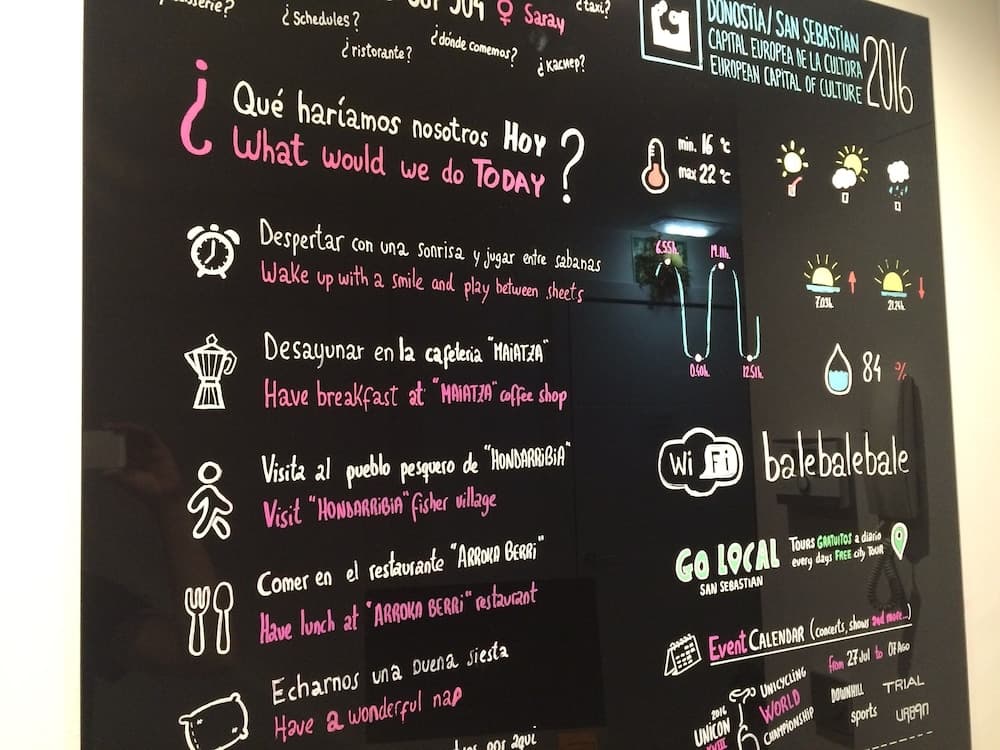 ¿Schedules?
♀ Saray
¿taxi?
¿ristorante?
¿dónde comemos?
¿Qué haríamos nosotros HOY
What would we do TODAY?
Despertar con una sonrisa y jugar entre sabanas
Wake up with a smile and play between sheets
Desayunar en la cafeteria "MAIATZA"
Have breakfast at "MAIATZA" coffee shop
Visita al pueblo pesquero de "HONDARRIBIA"
Visit "HONDARRIBIA" fisher village
Comer en el restaurante "ARROKA BERRI"
Have lunch at "ARROKA BERRI" restaurant
Echarnos una buena siesta
Have a wonderful nap
por aquí
DONOSTIA/SAN SEBASTIAN
CAPITAL EUROPEA DE LA CULTURA
EUROPEAN CAPITAL OF CULTURE
2016
min. 16 ºc
max 22 ºc
6.55h.
19.11h.
0.40h.
12.51h.
7.03h.
21.24h.
84 %
Wi Fi balebalebale
GO LOCAL
SAN SEBASTIAN
TOURS GRATUITOS a diario
every days FREE city TOUR
Event CALENDAR (concerts, shows and more...)
from 27 Jul to 07 AGO
2016
UNICON
XVIII
UNICYCLING
WORLD
CHAMPIONSHIP
DOWNHILL
TRIAL
sports
URBAN